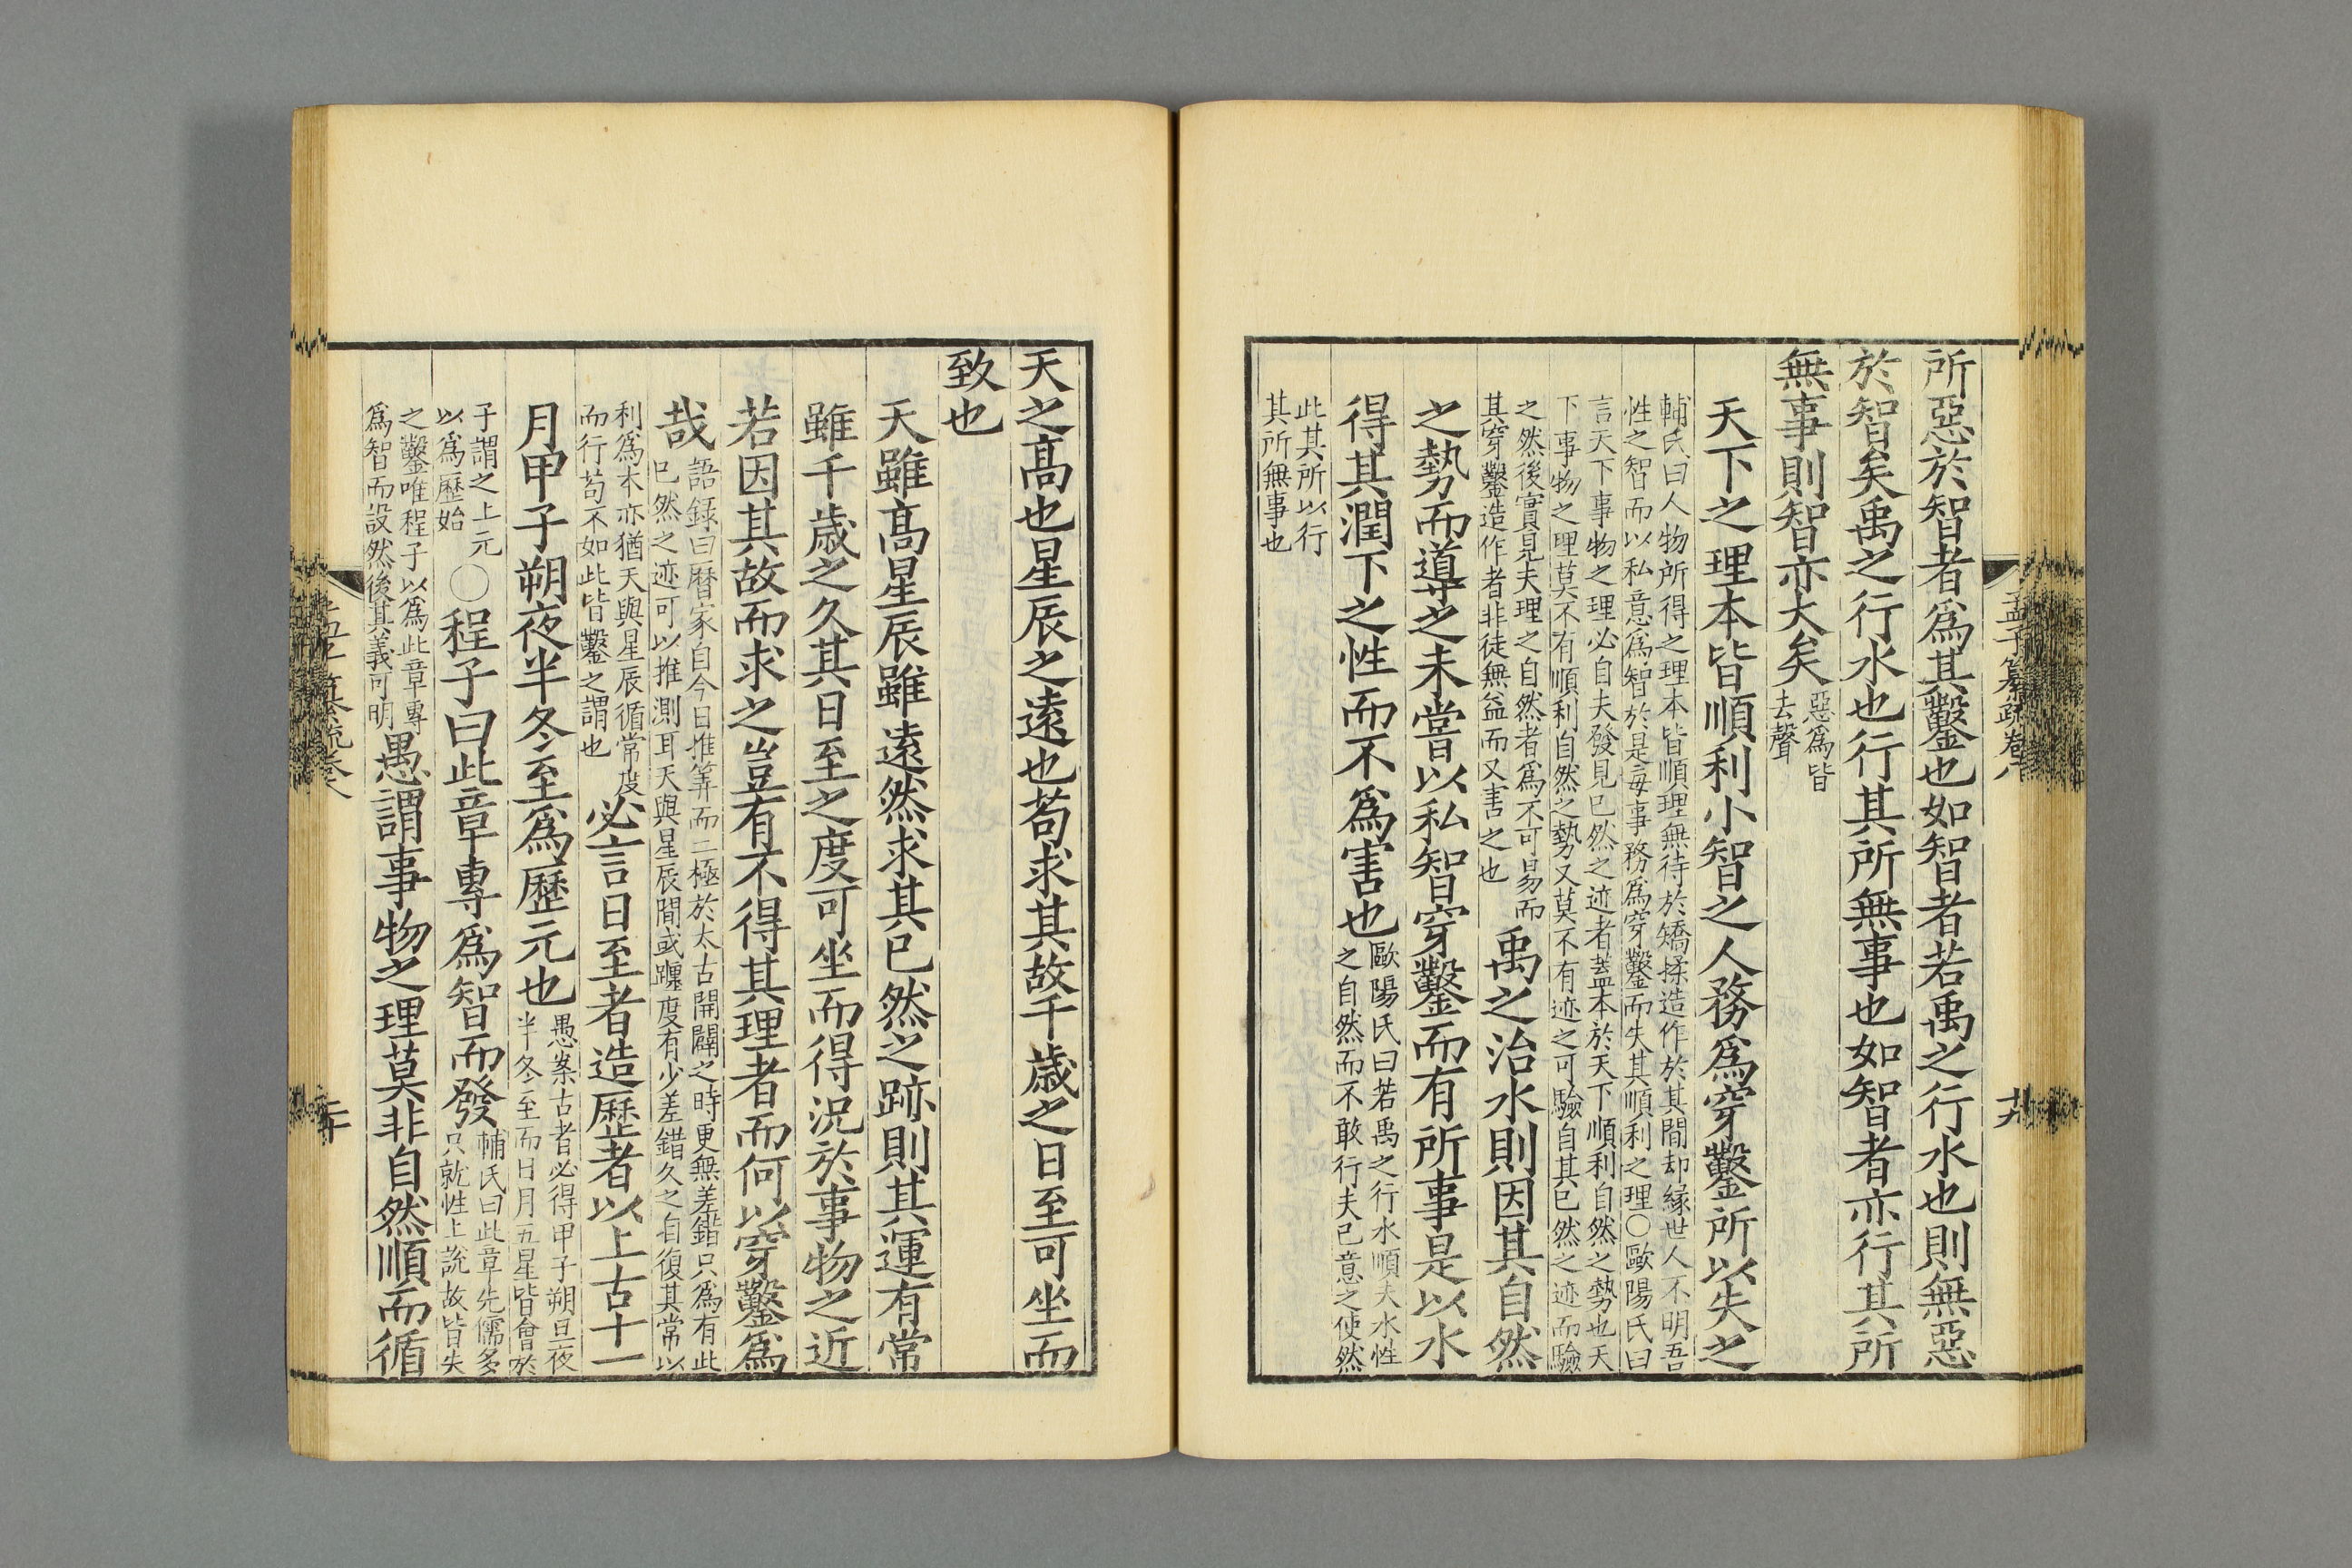 所惡於智者爲其鑿也如智者若禹之行水也則無惡
於智矣禹之行水也行其所無事也如智者亦行其所
無事則智亦大矣
惡爲皆
去聲
天下之理本皆順利小智之人務爲穿鑿所以失之
輔氏曰人物所得之理本皆順理無待於矯揉造作於其間却緣世人不明吾
性之智而以私意爲智於是每事務爲穿鑿而失其順利之理○歐陽氏曰
言天下事物之理必自夫發見已然之迹者蓋本於天下順利自然之勢也天
下事物之理莫不有順利自然之勢又莫不有迹之可驗自其已然之迹而驗
之然後實見夫理之自然者爲不可易而
其穿鑿造作者非徒無益而又害之也
禹之治水則因其自然
之勢而導之未嘗以私智穿鑿而有所事是以水
得其潤下之性而不爲害也
歐陽氏曰若禹之行水順夫水性
之自然而不敢行夫已意之使然
此其所以行
其所無事也
孟子纂疏卷八
十九
天之高也星辰之遠也苟求其故千歲之日至可坐而
致也
天雖高星辰雖遠然求其已然之跡則其運有常
雖千歲之久其日至之度可坐而得況於事物之近
若因其故而求之豈有不得其理者而何以穿鑿爲
哉
語錄曰曆家自今日推筭而上極於太古開闢之時更無差錯只爲有此
已然之迹可以推測耳天與星辰間或躔度有少差錯久之自復其常以
利爲本亦猶天與星辰循常度
而行苟不如此皆鑿之謂也
必言日至者造歷者以上古十一
月甲子朔夜半冬至爲歷元也
愚案古者必得甲子朔旦夜
半冬至而日月五星皆會於
子謂之上元
以爲歷始
○程子曰此章專爲智而發
輔氏曰此章先儒多
只就性上說故皆失
之鑿唯程子以爲此章專
爲智而設然後其義可明
愚謂事物之理莫非自然順而循
孟子纂疏卷八
二十